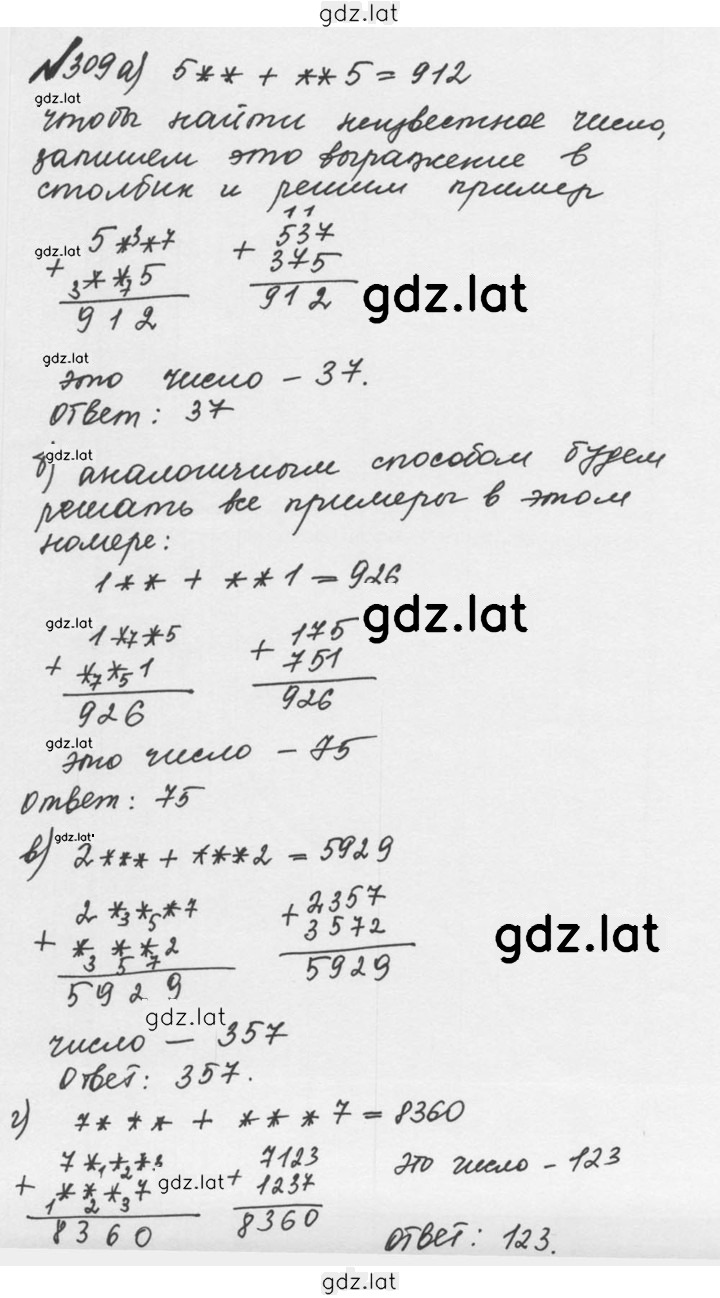 gdz.lat
№309 а) 5** + **5 = 912
gdz.lat
чтобы найти неизвестное число,
запишем это выражение в
столбик и решим пример
gdz.lat
5*3*7
+
3**75
912
11
+ 537
375
912
gdz.lat
gdz.lat
это число - 37.
Ответ: 37
gdz.lat
б) аналогичным способом будем
решать все примеры в этом
номере:
1** + **1 = 926
gdz.lat
gdz.lat
1*7*5
+ *7*51
926
+ 175
751
926
gdz.lat
это число - 75
Ответ: 75
gdz.lat
в) 2*** + ***2 = 5929
2*3*5*7
+ *3*5*72
5929
+ 2357
3572
5929
gdz.lat
gdz.lat
число - 357
Ответ: 357.
г) 7*** + ***7 = 8360
7*1*2*3
+ 1**2*37
8360
gdz.lat
+ 7123
1237
8360
это число - 123
Ответ: 123.
gdz.lat